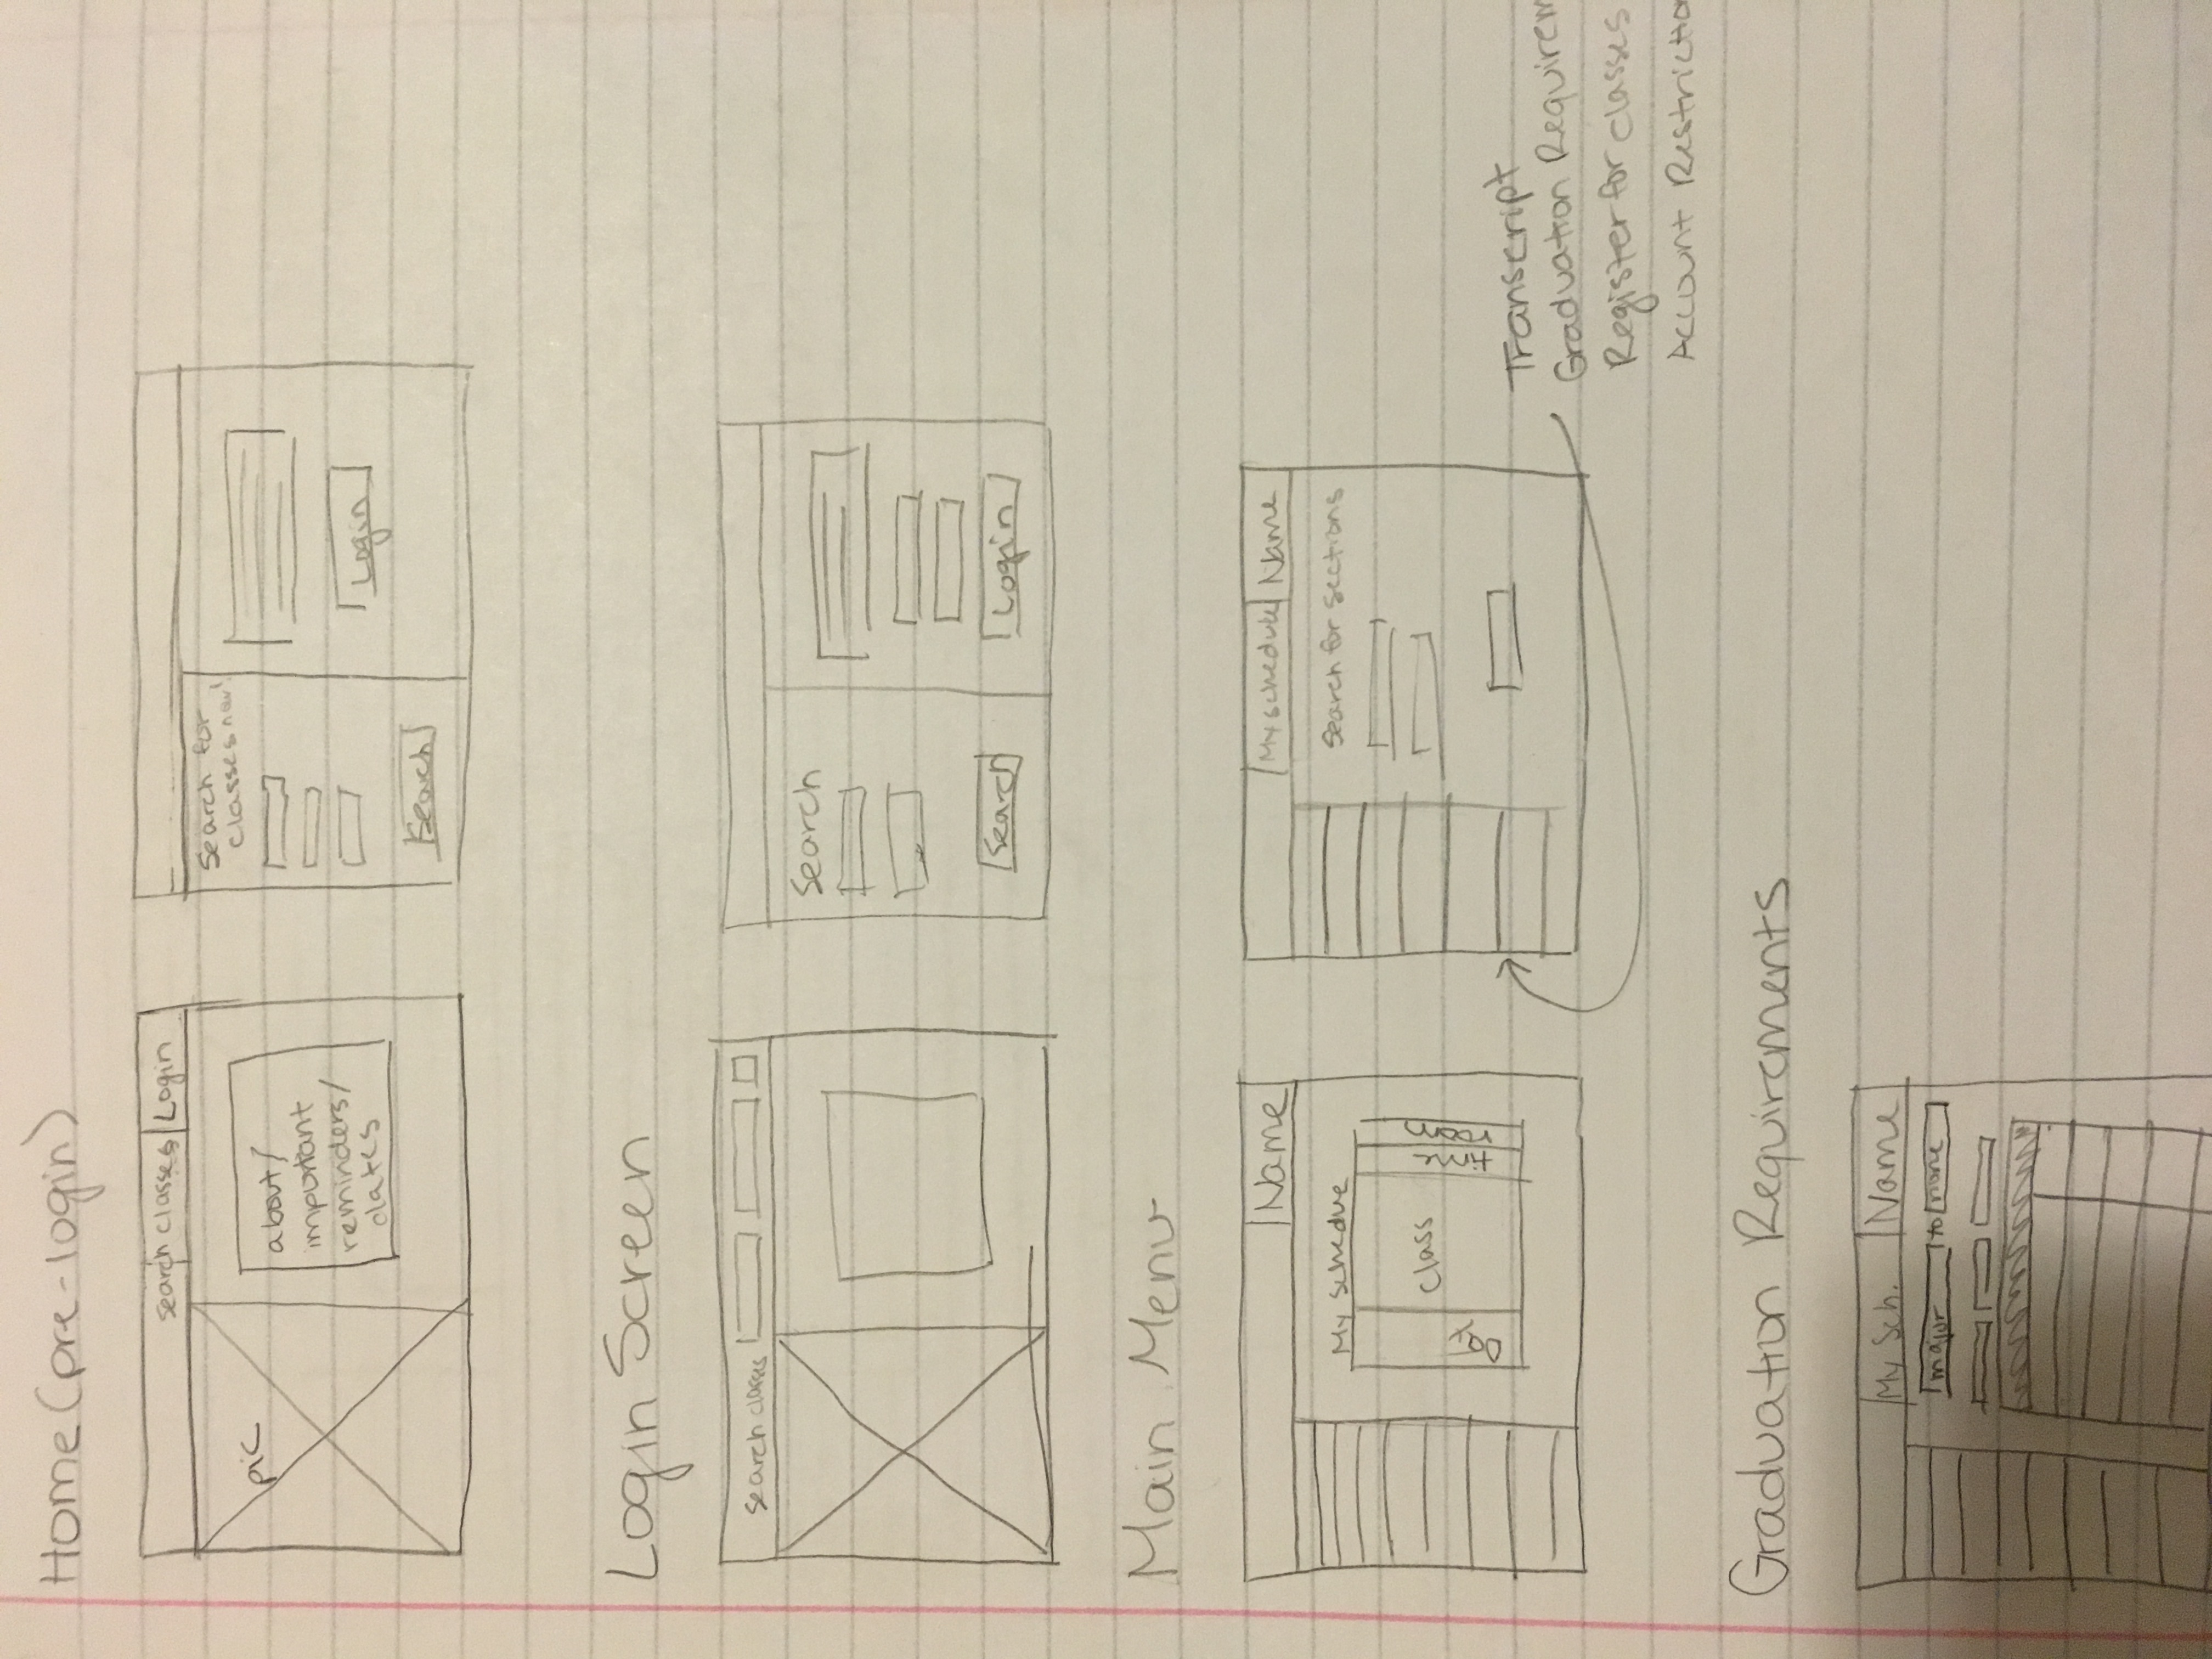 Home (pre-login)
search classes Login
pic
about/
important
reminders/
dates
Search for
classes now!
Search
Login
Login Screen
search classes
Search
Search
Login
Main Menu
Name
My schedule
class
My schedule Name
Search for sections
Transcript
Graduation Requirem
Register for classes
Account Restriction
Graduation Requirements
My Sch. Name
major to none